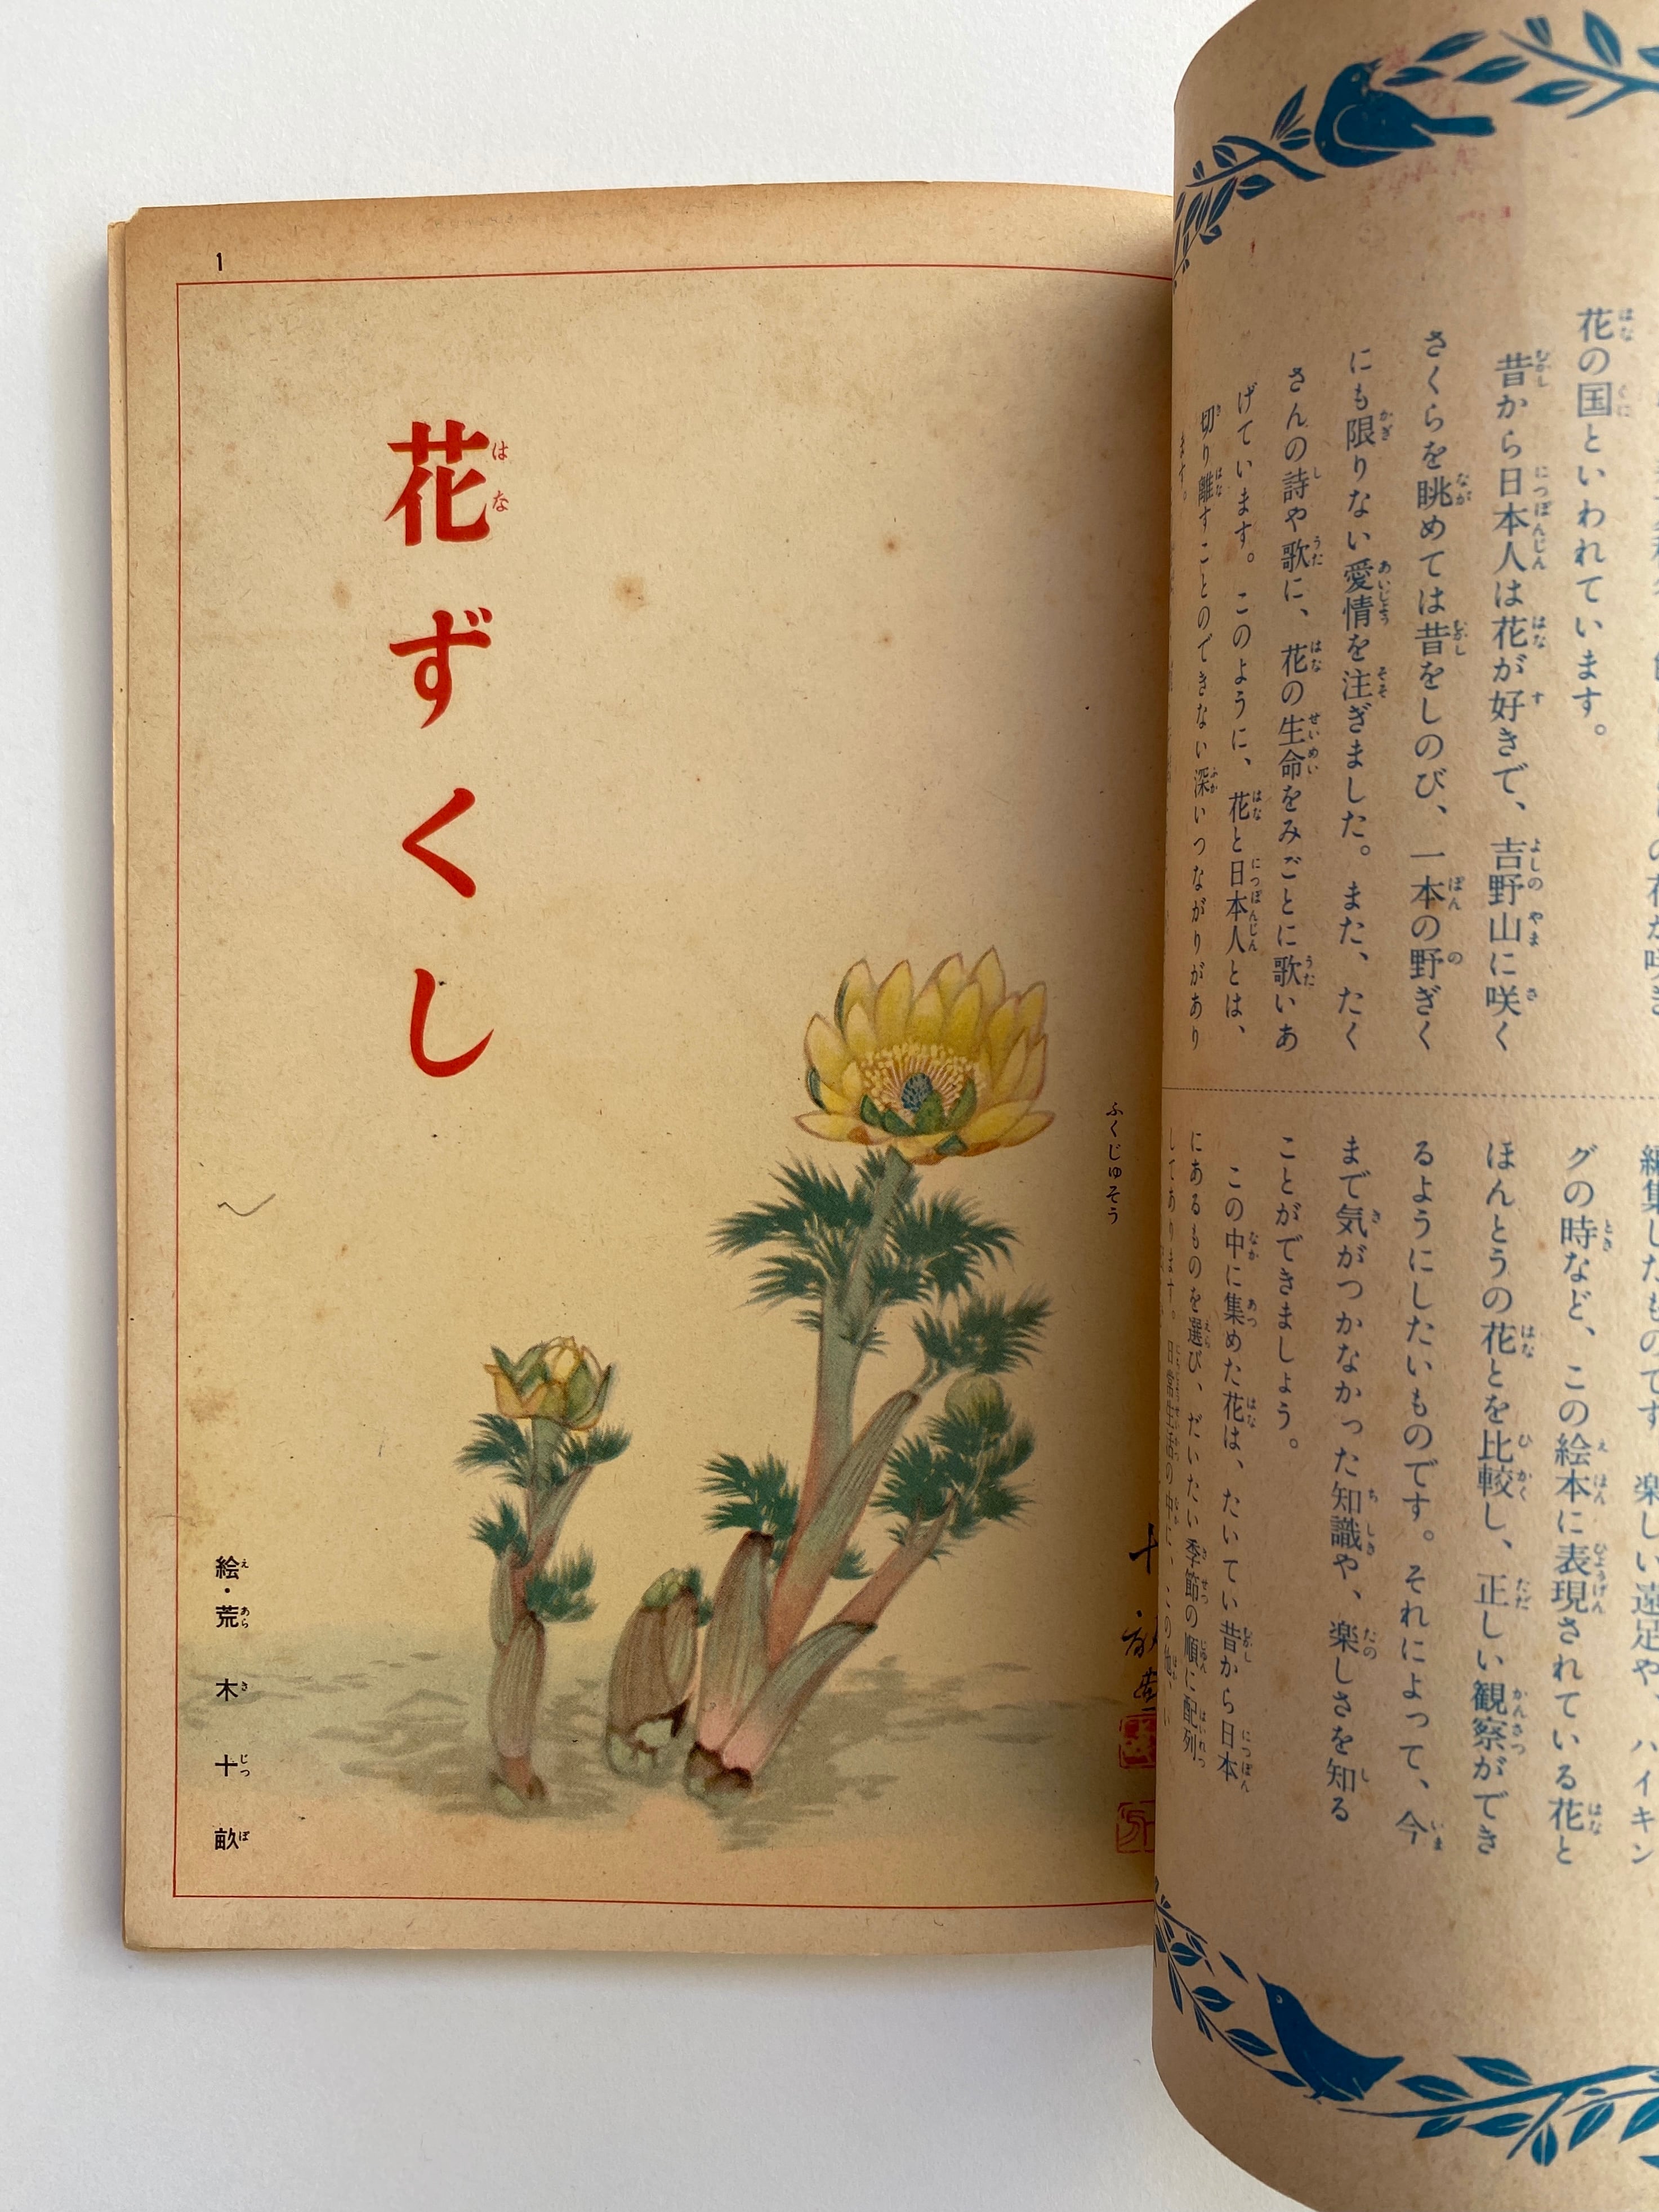 花の国といわれています。
昔から日本人は花が好きで、吉野山に咲く
さくらを眺めては昔をしのび、一本の野ぎく
にも限りない愛情を注ぎました。また、たく
さんの詩や歌に、花の生命をみごとに歌いあ
げています。このように、花と日本人とは、
切り離すことのできない深いつながりがあり
ます。
編集したものです 楽しい遠足や、ハイキン
グの時など、この絵本に表現されている花と
ほんとうの花とを比較し、正しい観察ができ
るようにしたいものです。それによって、今
まで気がつかなかった知識や、楽しさを知る
ことができましょう。
この中に集めた花は、たいてい昔から日本
にあるものを選び、だいたい季節の順に配列
してあります。日常生活の中に、この
1
ふくじゅそう
花ずくし
はな
絵・荒木十畝
え あらきじっぽ